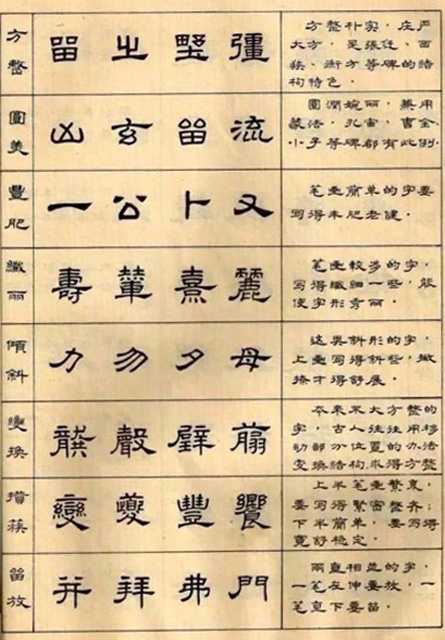 方整
留 之 野 彊
方整朴实，庄严
大方，是張迁、西
狭、衡方等碑的结
构特色。
圓美
玄 留 流
圓潤婉丽，兼用
篆法，孔宙、曹全、
小子等碑都有此例。
豐肥
一 公 卜 又
笔画简单的字要
写得丰肥老健。
纖丽
壽 熹 麗
笔画較多的字，
写得纖细一些，能
使字形秀丽。
傾斜
力 勿 夕 母
这类斜形的字，
上画写得斜些，撇
捺才得舒展。
變换
龔 聲 壁
本来不大方整的
字，古人往往用移
动部分位置的办法
变换结构求得方整
攢蔟
變 夔 豐 饗
上半笔画繁复，
要写得紧密整齐；
下半简单，要写得
宽舒稳定。
留放
并 拜 弗 門
兩直相並的字，
一笔左伸要放，一
笔直下要留。